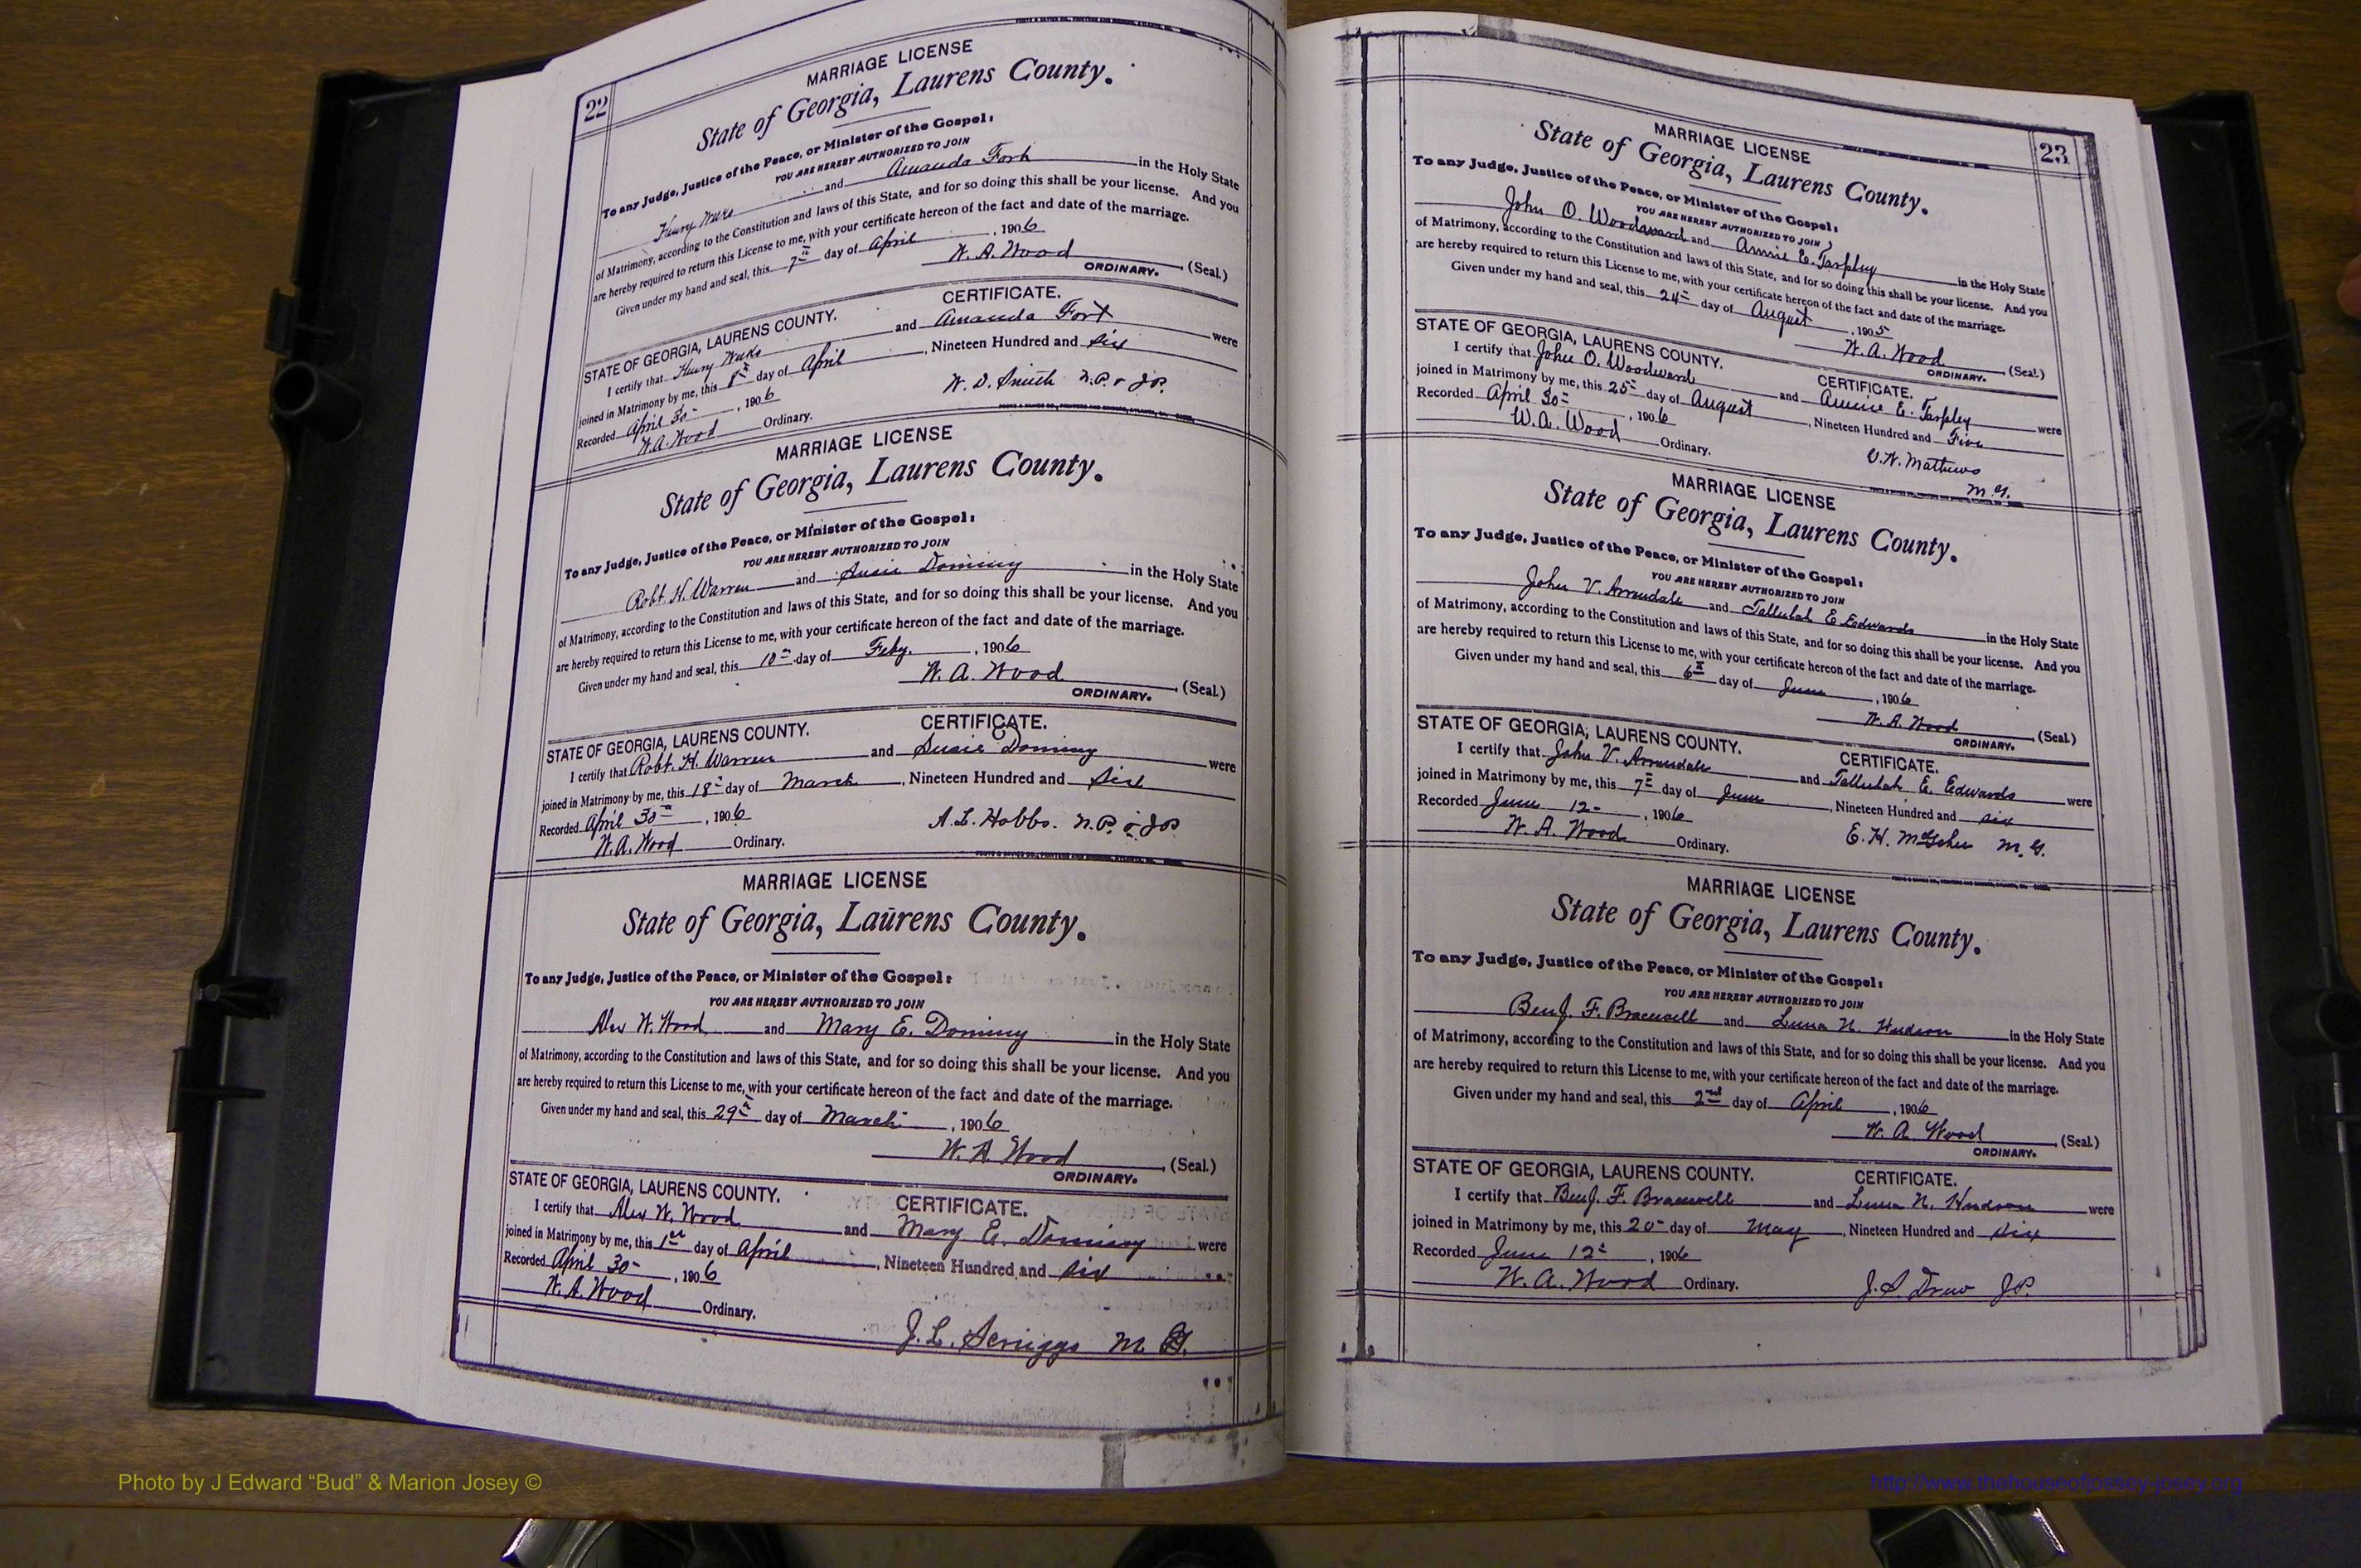 22
MARRIAGE LICENSE
State of Georgia, Laurens County.
To any Judge, Justice of the Peace, or Minister of the Gospel:
YOU ARE HEREBY AUTHORIZED TO JOIN
Henry and Amanda Fort in the Holy State
of Matrimony, according to the Constitution and laws of this State, and for so doing this shall be your license. And you
are hereby required to return this License to me, with your certificate hereon of the fact and date of the marriage.
Given under my hand and seal, this 7th day of April, 1906
W. A. Wood (Seal.)
ORDINARY.
CERTIFICATE.
STATE OF GEORGIA, LAURENS COUNTY.
I certify that Henry and Amanda Fort were
joined in Matrimony by me, this 8th day of April, Nineteen Hundred and six
Recorded April 30th, 1906
W. D. Smith N.P. & J.P.
W. A. Wood Ordinary.
MARRIAGE LICENSE
State of Georgia, Laurens County.
To any Judge, Justice of the Peace, or Minister of the Gospel:
YOU ARE HEREBY AUTHORIZED TO JOIN
Robt. H. Warren and Susie Dominy in the Holy State
of Matrimony, according to the Constitution and laws of this State, and for so doing this shall be your license. And you
are hereby required to return this License to me, with your certificate hereon of the fact and date of the marriage.
Given under my hand and seal, this day of Feby., 1906
W. A. Wood (Seal.)
ORDINARY.
CERTIFICATE.
STATE OF GEORGIA, LAURENS COUNTY.
I certify that Robt. H. Warren and Susie Dominy were
joined in Matrimony by me, this 18th day of March, Nineteen Hundred and six
Recorded April 30th, 1906
A. L. Hobbs. N.P. & J.P.
W. A. Wood Ordinary.
MARRIAGE LICENSE
State of Georgia, Laurens County.
To any Judge, Justice of the Peace, or Minister of the Gospel:
YOU ARE HEREBY AUTHORIZED TO JOIN
Alex W. Wood and Mary E. Dominy in the Holy State
of Matrimony, according to the Constitution and laws of this State, and for so doing this shall be your license. And you
are hereby required to return this License to me, with your certificate hereon of the fact and date of the marriage.
Given under my hand and seal, this 29th day of March, 1906
W. A. Wood (Seal.)
ORDINARY.
STATE OF GEORGIA, LAURENS COUNTY.
CERTIFICATE.
I certify that Alex W. Wood and Mary E. Dominy were
joined in Matrimony by me, this 1st day of April, Nineteen Hundred and six
Recorded April 30th, 1906
W. A. Wood Ordinary.
J. L. Scruggs M.G.
23
MARRIAGE LICENSE
State of Georgia, Laurens County.
To any Judge, Justice of the Peace, or Minister of the Gospel:
YOU ARE HEREBY AUTHORIZED TO JOIN
John O. Woodward and Annie E. Tarpley in the Holy State
of Matrimony, according to the Constitution and laws of this State, and for so doing this shall be your license. And you
are hereby required to return this License to me, with your certificate hereon of the fact and date of the marriage.
Given under my hand and seal, this 24th day of August, 1905
W. A. Wood (Seal.)
ORDINARY.
STATE OF GEORGIA, LAURENS COUNTY.
CERTIFICATE.
I certify that John O. Woodward and Annie E. Tarpley were
joined in Matrimony by me, this 25th day of August, Nineteen Hundred and Five
Recorded April 30th, 1906
W. A. Wood Ordinary.
Mathews
M.G.
MARRIAGE LICENSE
State of Georgia, Laurens County.
To any Judge, Justice of the Peace, or Minister of the Gospel:
YOU ARE HEREBY AUTHORIZED TO JOIN
John V. Arrendale and Tallulah E. Edwards in the Holy State
of Matrimony, according to the Constitution and laws of this State, and for so doing this shall be your license. And you
are hereby required to return this License to me, with your certificate hereon of the fact and date of the marriage.
Given under my hand and seal, this 6th day of June, 1906
W. A. Wood (Seal.)
ORDINARY.
STATE OF GEORGIA, LAURENS COUNTY.
CERTIFICATE.
I certify that John V. Arrendale and Tallulah E. Edwards were
joined in Matrimony by me, this 7th day of June, Nineteen Hundred and six
Recorded June 12th, 1906
W. A. Wood Ordinary.
E. H. McGehee M.G.
MARRIAGE LICENSE
State of Georgia, Laurens County.
To any Judge, Justice of the Peace, or Minister of the Gospel:
YOU ARE HEREBY AUTHORIZED TO JOIN
Benj. F. Bracewell and N. Hudson in the Holy State
of Matrimony, according to the Constitution and laws of this State, and for so doing this shall be your license. And you
are hereby required to return this License to me, with your certificate hereon of the fact and date of the marriage.
Given under my hand and seal, this 2nd day of April, 1906
W. A. Wood (Seal.)
ORDINARY.
STATE OF GEORGIA, LAURENS COUNTY.
CERTIFICATE.
I certify that Benj. F. Bracewell and N. Hudson were
joined in Matrimony by me, this 20th day of May, Nineteen Hundred and six
Recorded June 12th, 1906
W. A. Wood Ordinary.
J. S. Drew J.P.
Photo by J Edward “Bud” & Marion Josey ©
http://www.thehouseofjossey-josey.org